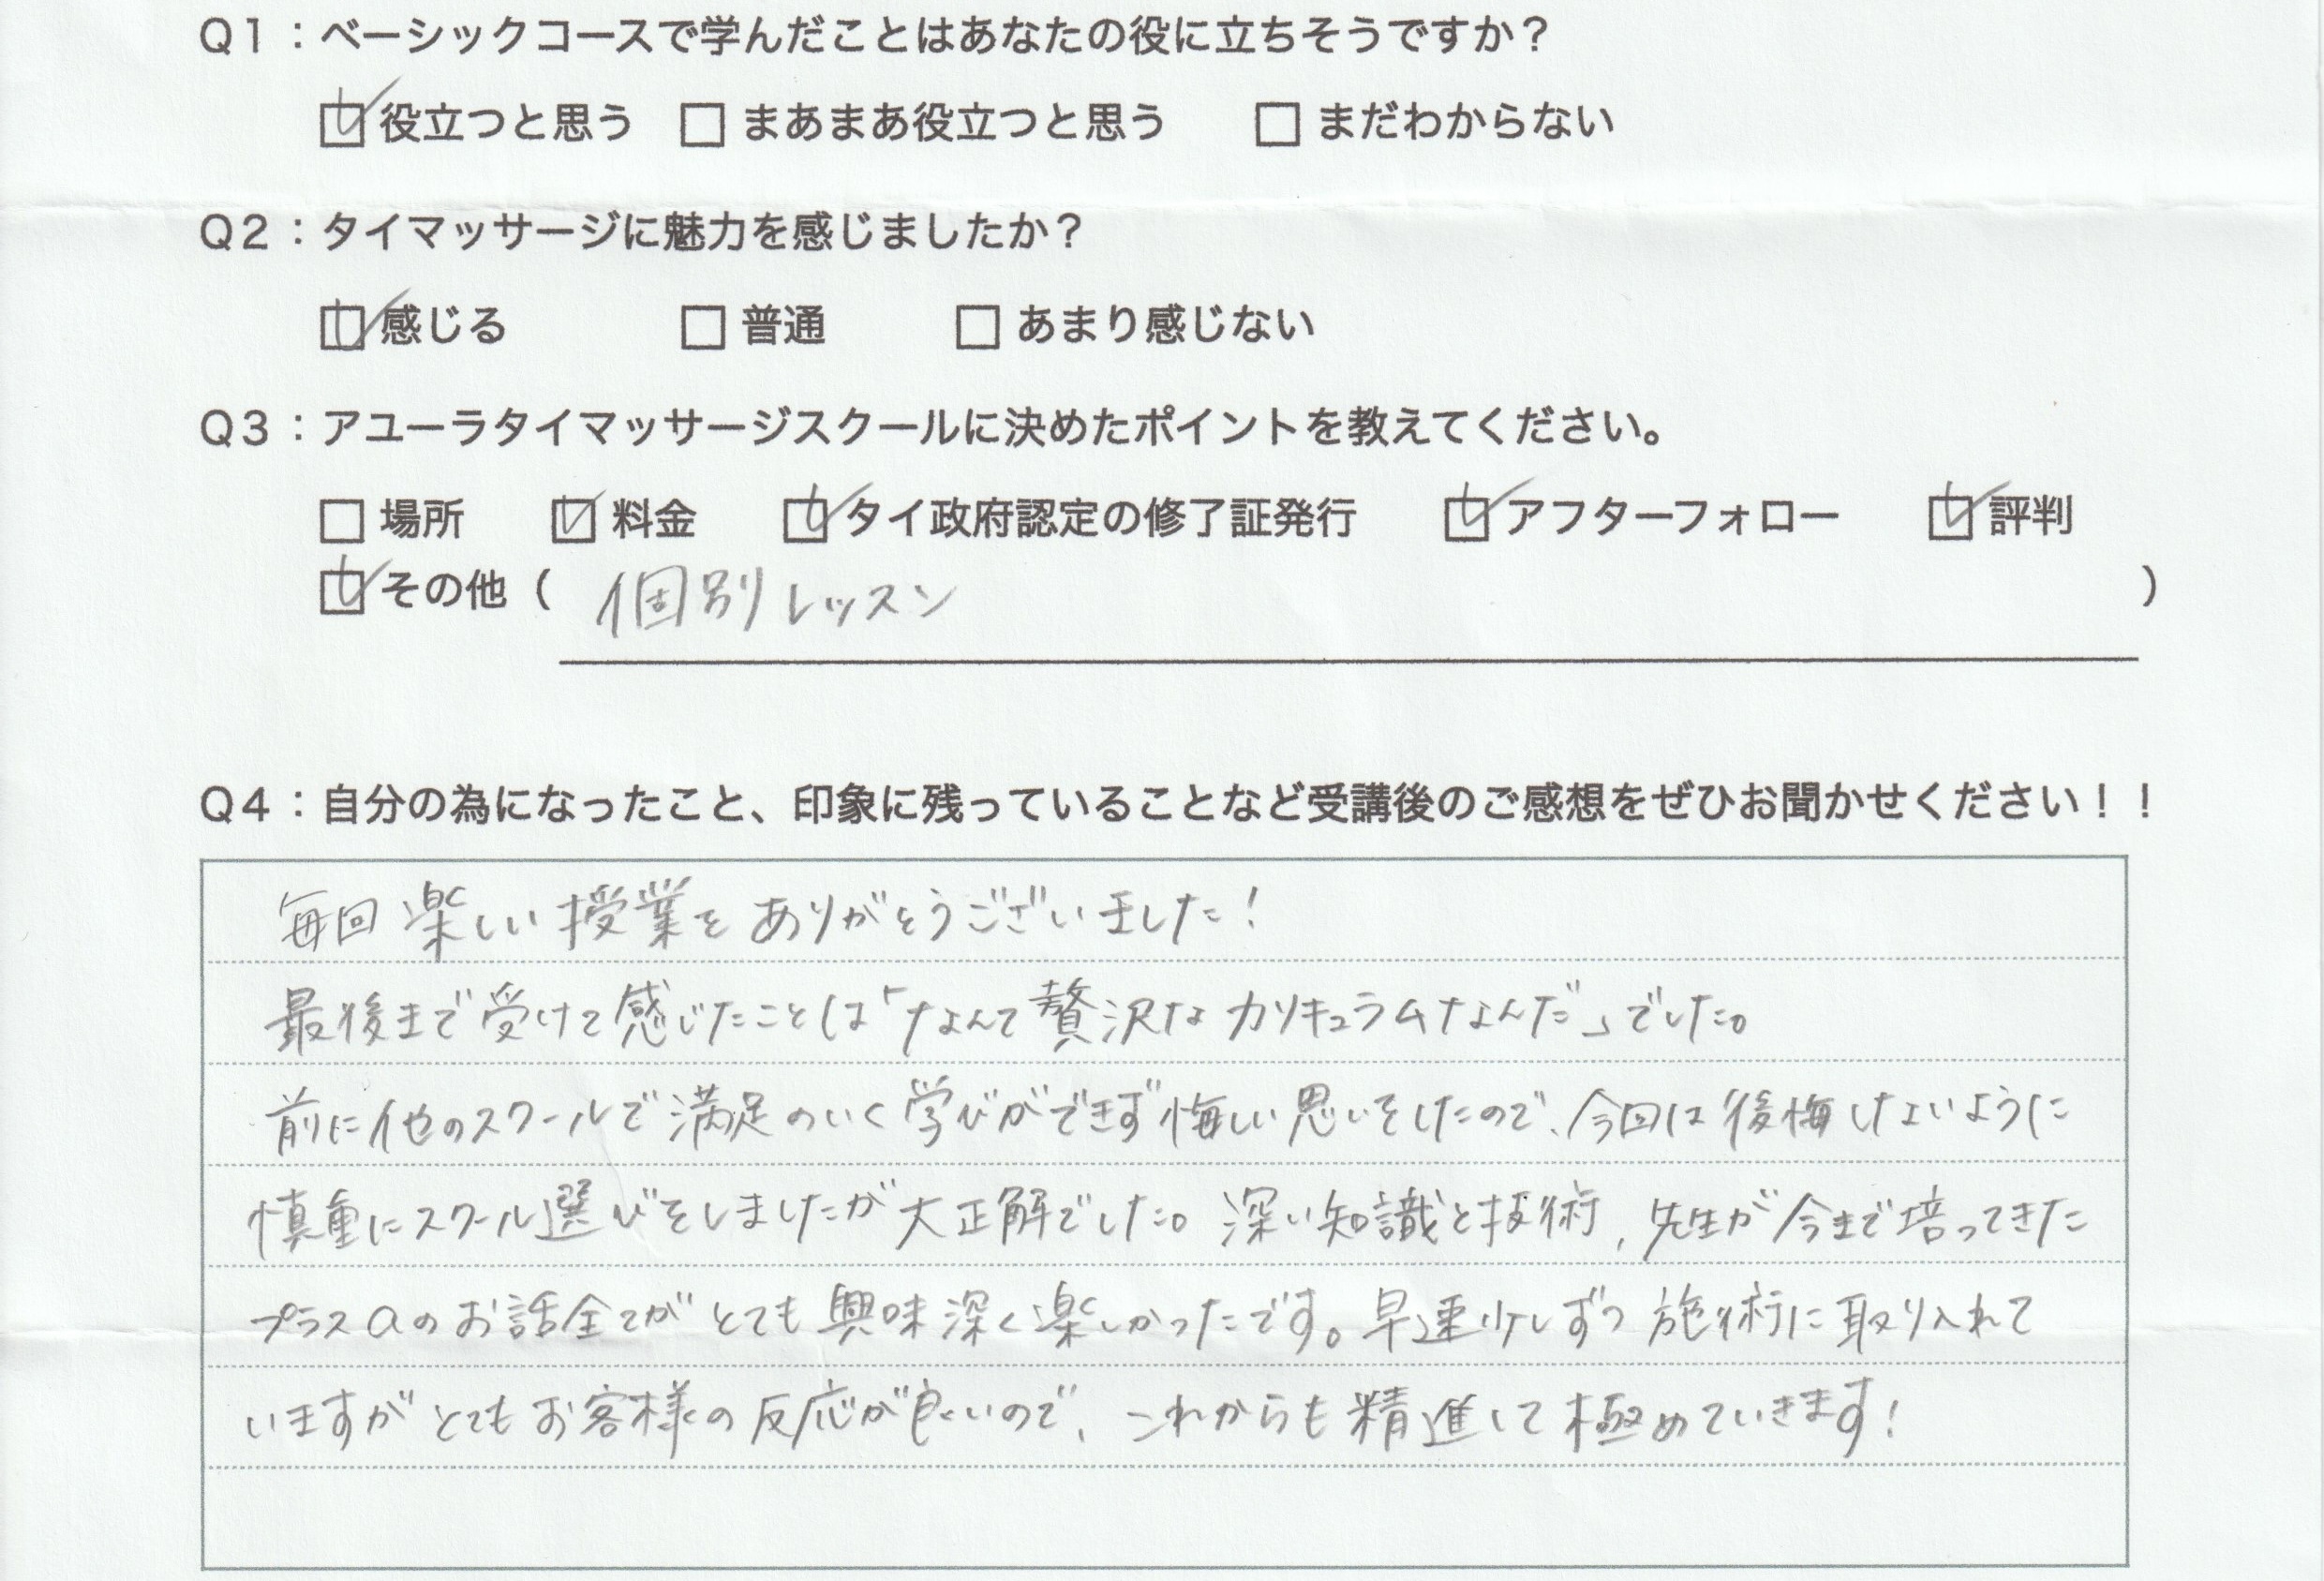 Q1：ベーシックコースで学んだことはあなたの役に立ちそうですか？
☑役立つと思う □まあまあ役立つと思う □まだわからない
Q2：タイマッサージに魅力を感じましたか？
☑感じる □普通 □あまり感じない
Q3：アユーラタイマッサージスクールに決めたポイントを教えてください。
□場所 ☑料金 ☑タイ政府認定の修了証発行 ☑アフターフォロー ☑評判
☑その他（個別レッスン）
Q4：自分の為になったこと、印象に残っていることなど受講後のご感想をぜひお聞かせください！！
毎回楽しい授業をありがとうございました！
最後まで受けて感じたことは「なんて贅沢なカリキュラムなんだ」でした。
前に他のスクールで満足のいく学びができず悔しい思いをしたので、今回は後悔しないように
慎重にスクール選びをしましたが大正解でした。深い知識と技術、先生が今まで培ってきた
プラスαのお話全てがとても興味深く楽しかったです。早速少しずつ施術に取り入れて
いますがとてもお客様の反応が良いので、これからも精進して極めていきます！